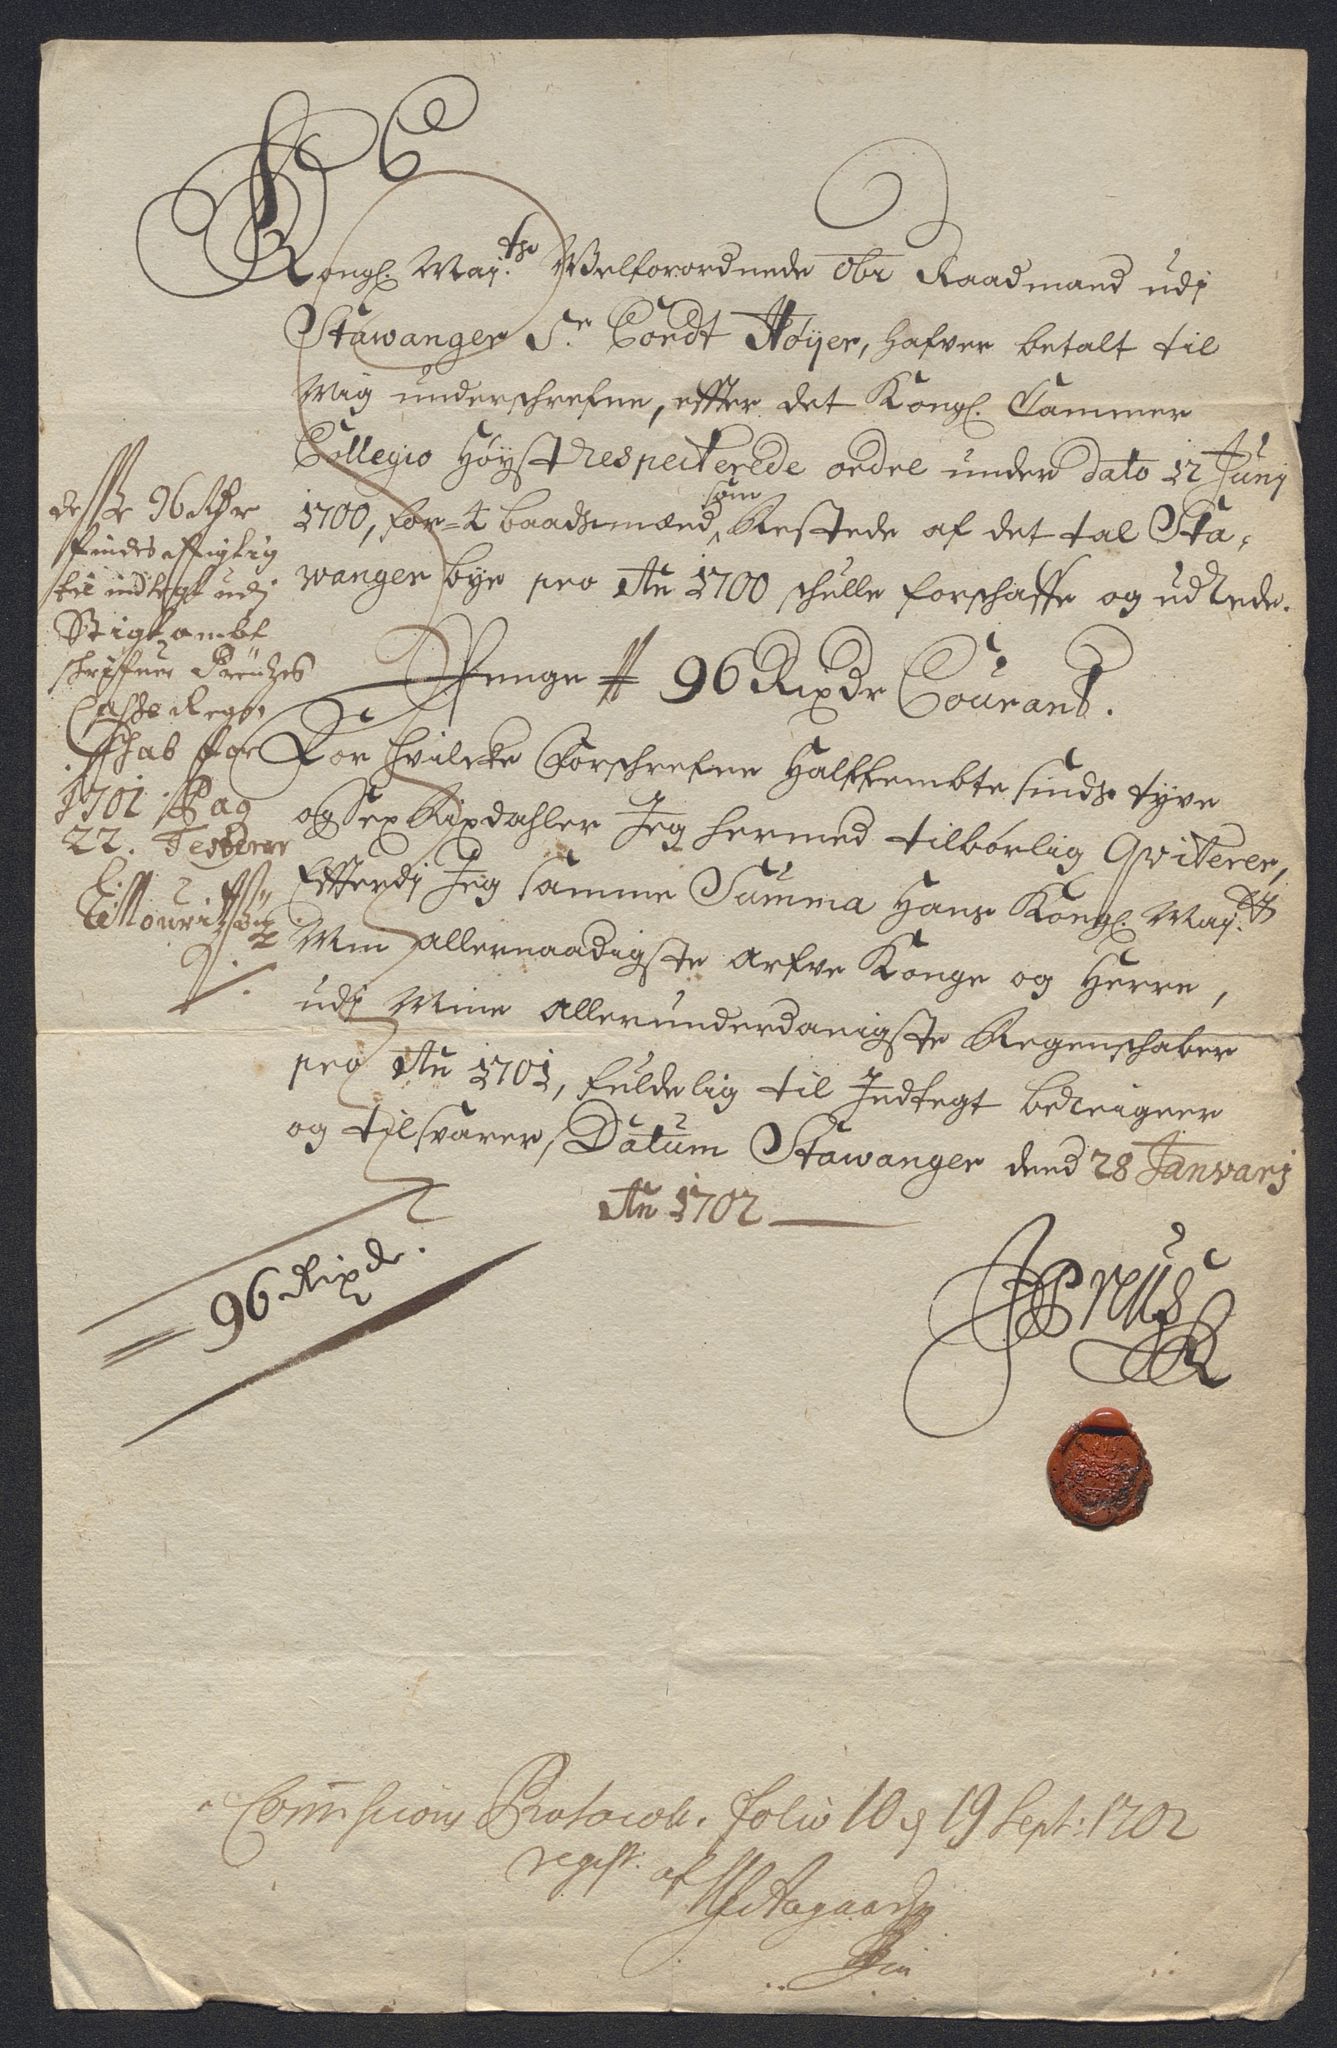 Kongl Maj.ts Velforordnede Obr Raadmand udj
Stawanger Sr. Cordt Høÿer, hafver betalt til
Mig underschrefne, effter det Kongl. Cammer
Collegio Høyst respecterede ordre under dato 12 Junj
1700, for 4 baadsmænd, som Restede af det tal Sta-
wanger bye pro Ao 1700 schulle forschaffe og udrede.
Penge 96 Rixdr Courant.
For hvilcke Forschrefne Halffembte sinds tyve
og Sex Rixdahler Jeg hermed tilbørlig Qviterer,
Efterdj Jeg samme Summa Hans Kongl. Maj.tt
Min allernaadigste Arfve Konge og Herre,
udj Mine allerunderdanigste Regenschaber
pro Ao 1701, fuldelig til Indtegt beregner
og tilsvarer, Datum Stawanger dend 28 Janvarj
Ao 1702
96 Rixdr.
desse 96 Rdr
findes rigtig
til indtegt udj
Stigtambt
schrifver Preützes
Cassse Regn
schab for
1701 Pag
22. Testerer
Commissions Protocoll. folio 10 og 19 Sept: 1702
regist. af
Aagaard